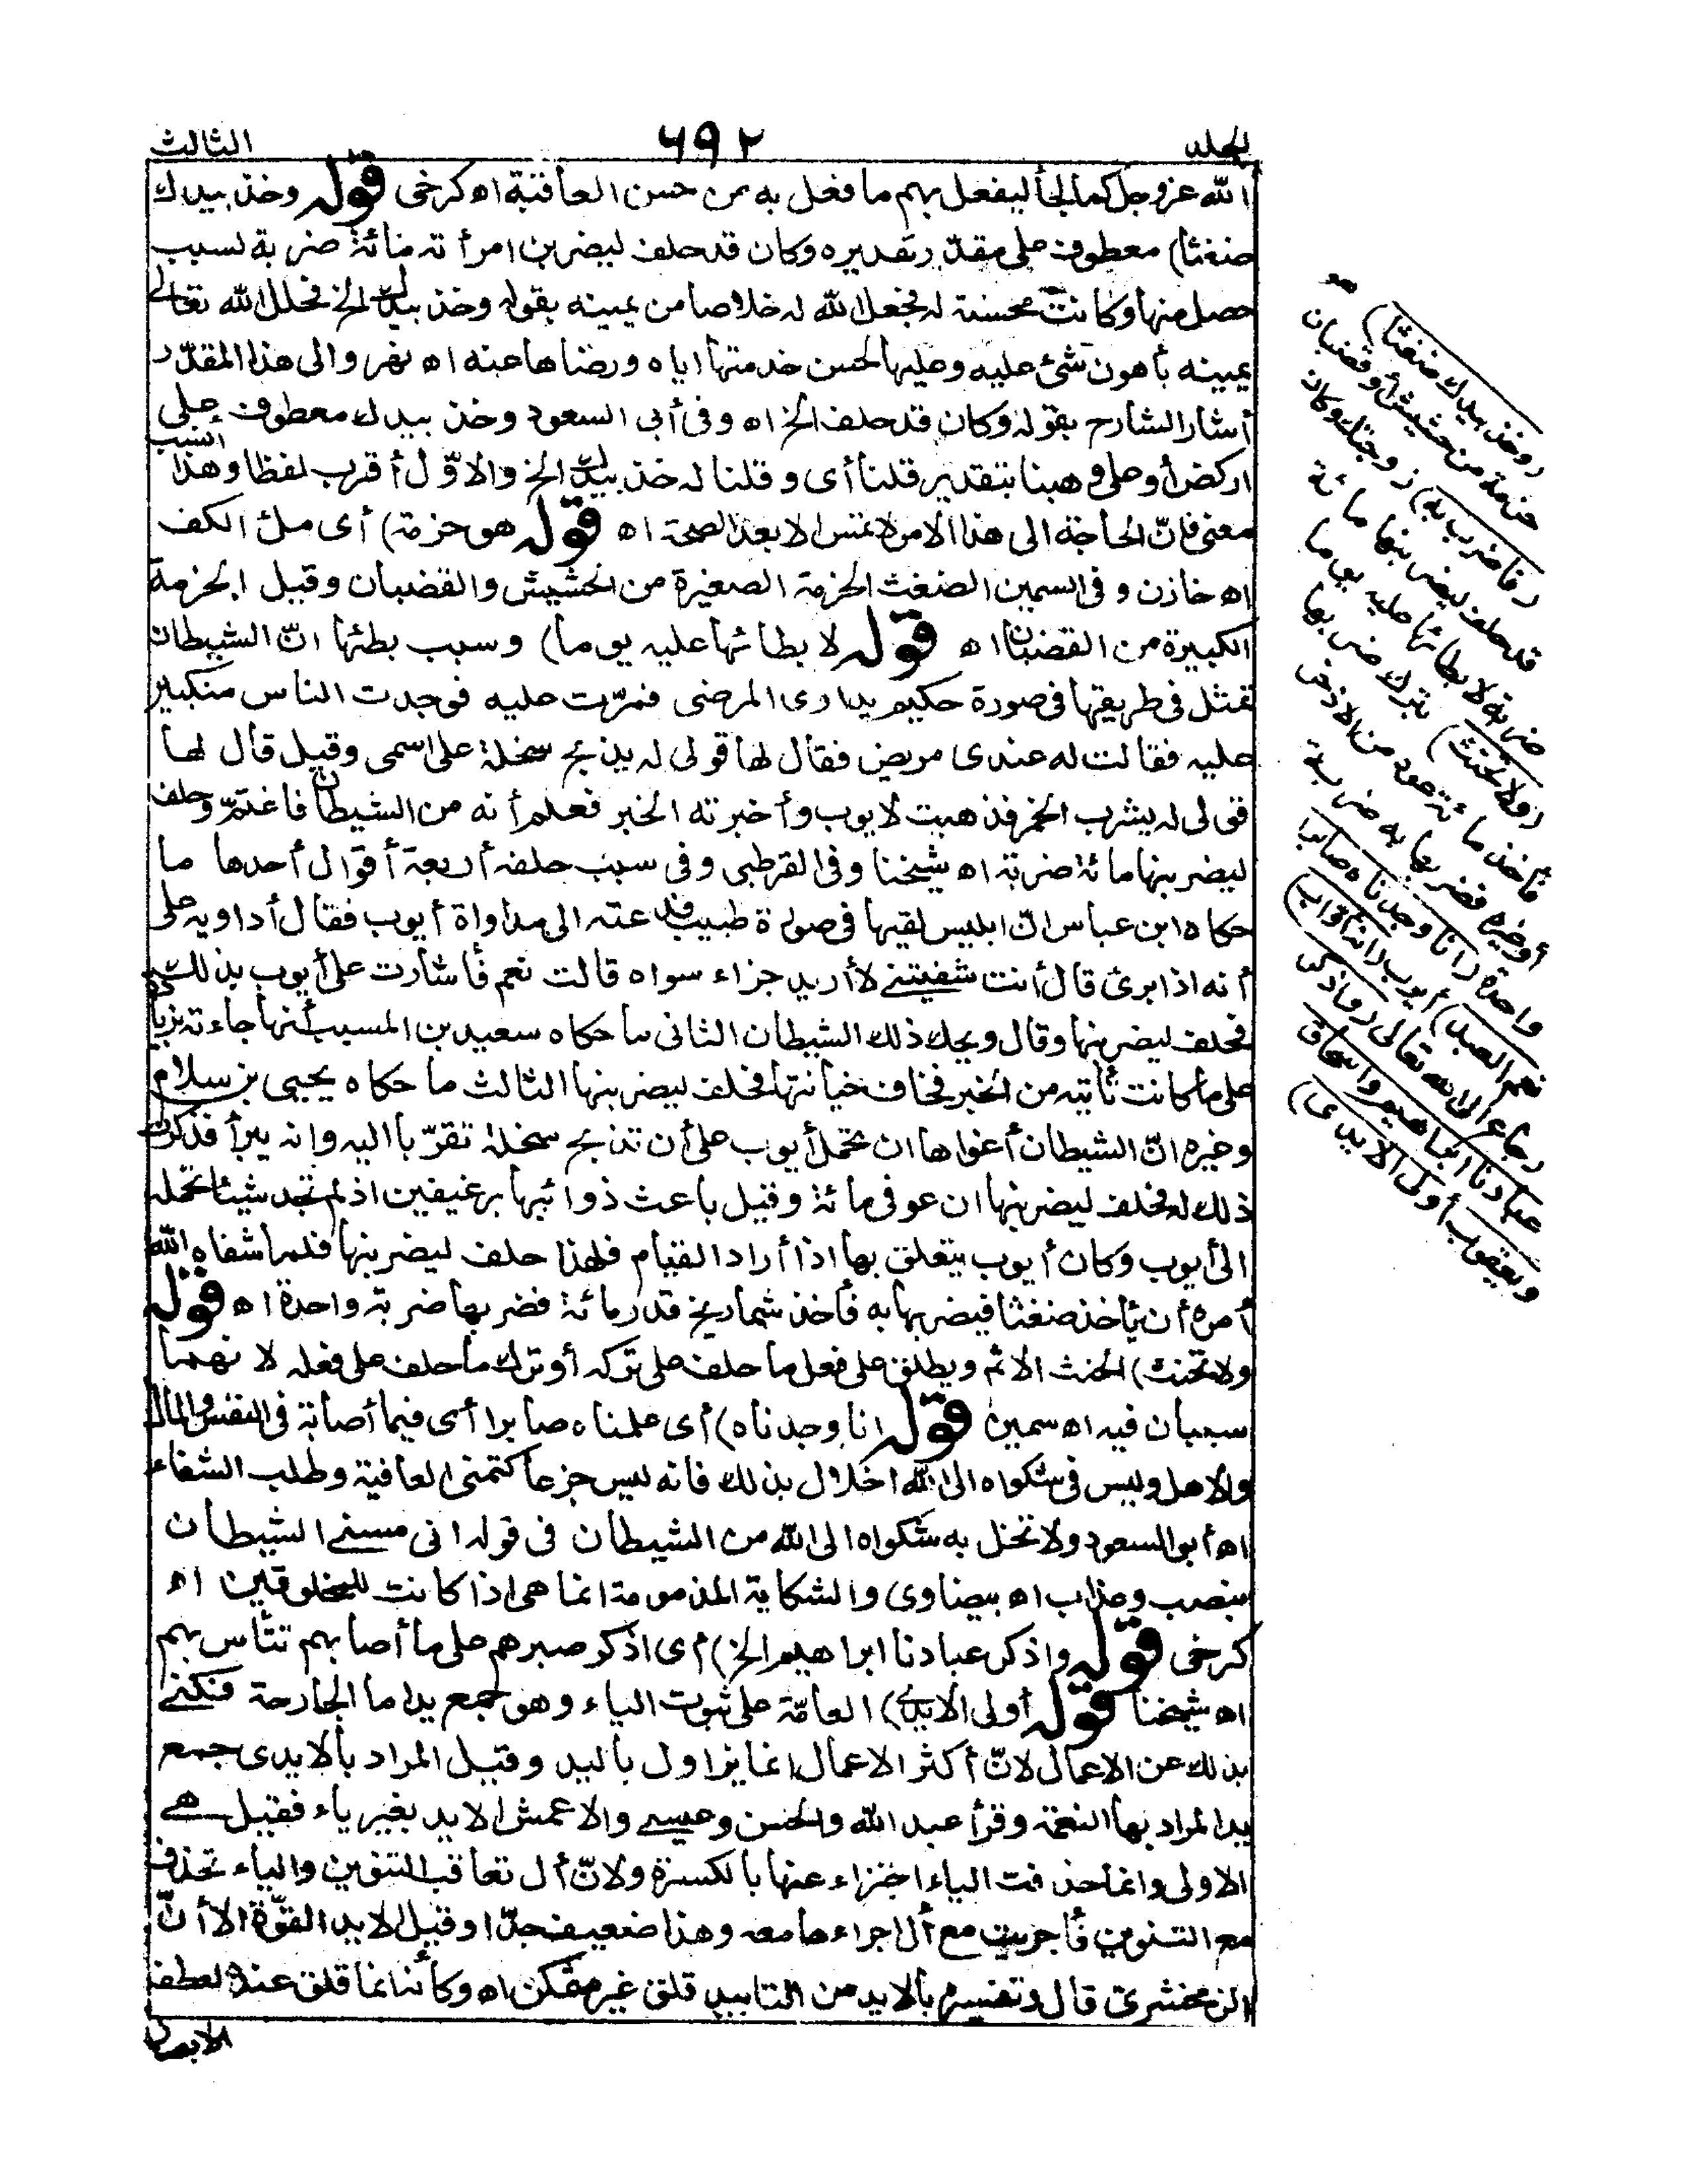 الجلد ٦٩٢ الثالث
الله عز وجل كما لجأ ليفعل بهم ما فعل به من حسن العاقبة اه كرخى قوله وخذ بيدك
ضغثا) معطوف على مقدّر تقديره وكان قد حلف ليضربن امرأته مائة ضربة لسبب
حصل منها وكانت محسنة له فجعل الله له خلاصا من يمينه بقوله وخذ بيدك الخ فحلل الله تعالى
يمينه بأهون شئ عليه وعليها لحسن خدمتها اياه ورضاها عنه اه نهر والى هذا المقدّر
أشار الشارح بقوله وكان قد حلف الخ اه وفى أبى السعود وخذ بيدك معطوف على
اركض أو على وهبنا بتقدير قلنا أى وقلنا له خذ بيدك الخ والاوّل أقرب لفظا وهذا أنسب
معنى فانّ الحاجة الى هذا الامر لا تمس الا بعد الصحة اه قوله هو حزمة) أى ملئ الكف
اه خازن وفى السمين الضغث الحزمة الصغيرة من الحشيش والقضبان وقيل الحزمة
الكبيرة من القضبان اه قوله لابطائها عليه يوما) وسبب بطئها انّ الشيطان
تمثل فى طريقها فى صورة حكيم يداوى المرضى فمرّت عليه فوجدت الناس منكبين
عليه فقالت له عندى مريض فقال لها قولى له يذبح سخلة على اسمى وقيل قال لها
قولى له يشرب الخمر فذهبت لايوب وأخبرته الخبر فعلم أنه من الشيطان فاغتمّ وحلف
ليضربنها مائة ضربة اه شيخنا وفى القرطبى وفى سبب حلفه أربعة أقوال أحدها ما
حكاه ابن عباس انّ ابليس لقيها فى صورة طبيب فدعته الى مداواة أيوب فقال أداويه على
أنه اذا برئ قال أنت شفيتنى لا أريد جزاء سواه قالت نعم فأشارت على أيوب بذلك
فحلف ليضربنها وقال ويحك ذلك الشيطان الثانى ما حكاه سعيد بن المسيب أنها جاءته بزيادة
على ما كانت تأتيه من الخبز فخاف خيانتها فحلف ليضربنها الثالث ما حكاه يحيى بن سلام
وغيره انّ الشيطان أغواها ان تحمل أيوب على أن تذبح سخلة تقرّبا اليه وانه يبرأ فذكرت
ذلك له فحلف ليضربنها ان عوفى مائة وقيل باعت ذوائبها برغيفين اذ لم تجد شيئا تحمله
الى أيوب وكان أيوب يتعلق بها اذا أراد القيام فلهذا حلف ليضربنها فلما شفاه الله
أمره أن يأخذ ضغثا فيضربها به فأخذ شماريخ قدر مائة فضربها ضربة واحدة اه قوله
ولا تحنث) الحنث الاثم ويطلق على فعل ما حلف على تركه أو ترك ما حلف على فعله لا نهما
سببان فيه اه سمين قوله انا وجدناه) أى علمناه صابرا أى فيما أصابه فى النفس والمال
والاهل وليس فى شكواه الى الله اخلال بذلك فانه ليس جزعا كتمنى العافية وطلب الشفاء
اه أبو السعود ولا تخل به شكواه الى الله من الشيطان فى قوله انى مسنى الشيطان
بنصب وعذاب اه بيضاوى والشكاية المذمومة انما هى اذا كانت للمخلوقين اه
كرخى قوله واذكر عبادنا ابراهيم الخ) أى اذكر صبرهم على ما أصابهم تتأس بهم
اه شيخنا قوله أولى الايدى) العامّة على ثبوت الياء وهو جمع يد اما الجارحة فكنى
بذلك عن الاعمال لانّ أكثر الاعمال انما يزاول باليد وقيل المراد بالايدى جمع
يد المراد بها النعمة وقرأ عبد الله والحسن وعيسى والاعمش الايد بغير ياء فقيل هى
الاولى وانما حذفت الياء اجتزاء عنها بالكسرة ولانّ أل تعاقب التنوين والياء تحذف
مع التنوين فأجريت مع أل اجراءها معه وهذا ضعيف جدّا وقيل الايد القوّة الا أنّ
الزمخشرى قال وتفسيره بالايد من التأييد قلق غير متمكن اه وكأنه انما قلق عنده لعطف
الابصار
(وخذ بيدك ضغثا) هو
حزمة من حشيش أو قضبان
(فاضرب به) زوجتك وكان
قد حلف ليضربنها مائة
ضربة لابطائها عليه يوما
(ولا تحنث) بترك ضربها
فأخذ مائة عود من الاذخر
أو غيره فضربها به ضربة
واحدة (انا وجدناه صابرا
نعم العبد) أيوب (انه أوّاب)
رجاع الى الله تعالى (واذكر
عبادنا ابراهيم واسحاق
ويعقوب أولى الايدى)